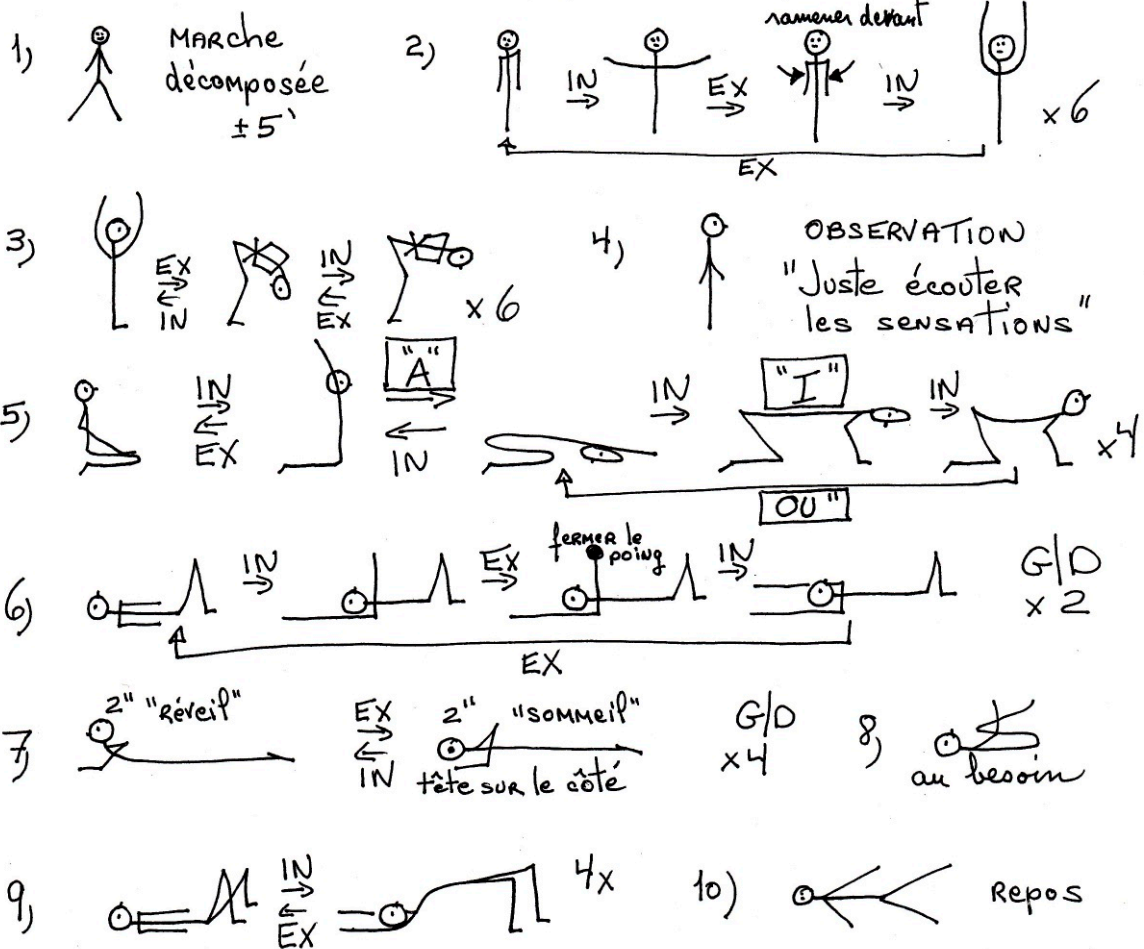 1) MARche
décomposée
±5'
2) ramener devant
IN EX IN
x 6
EX
3) EX IN
IN EX
x 6
4) OBSERVATION
"Juste écouter
les sensations"
5) IN "A" IN "I" IN
EX IN
x4
OU"
6) IN EX fermer le poing IN G/D
x 2
EX
7) 2" "Réveil" EX 2" "SOMMeil" G/D
IN tête sur le côté x4
8) au besoin
9) IN 4x
EX
10) Repos